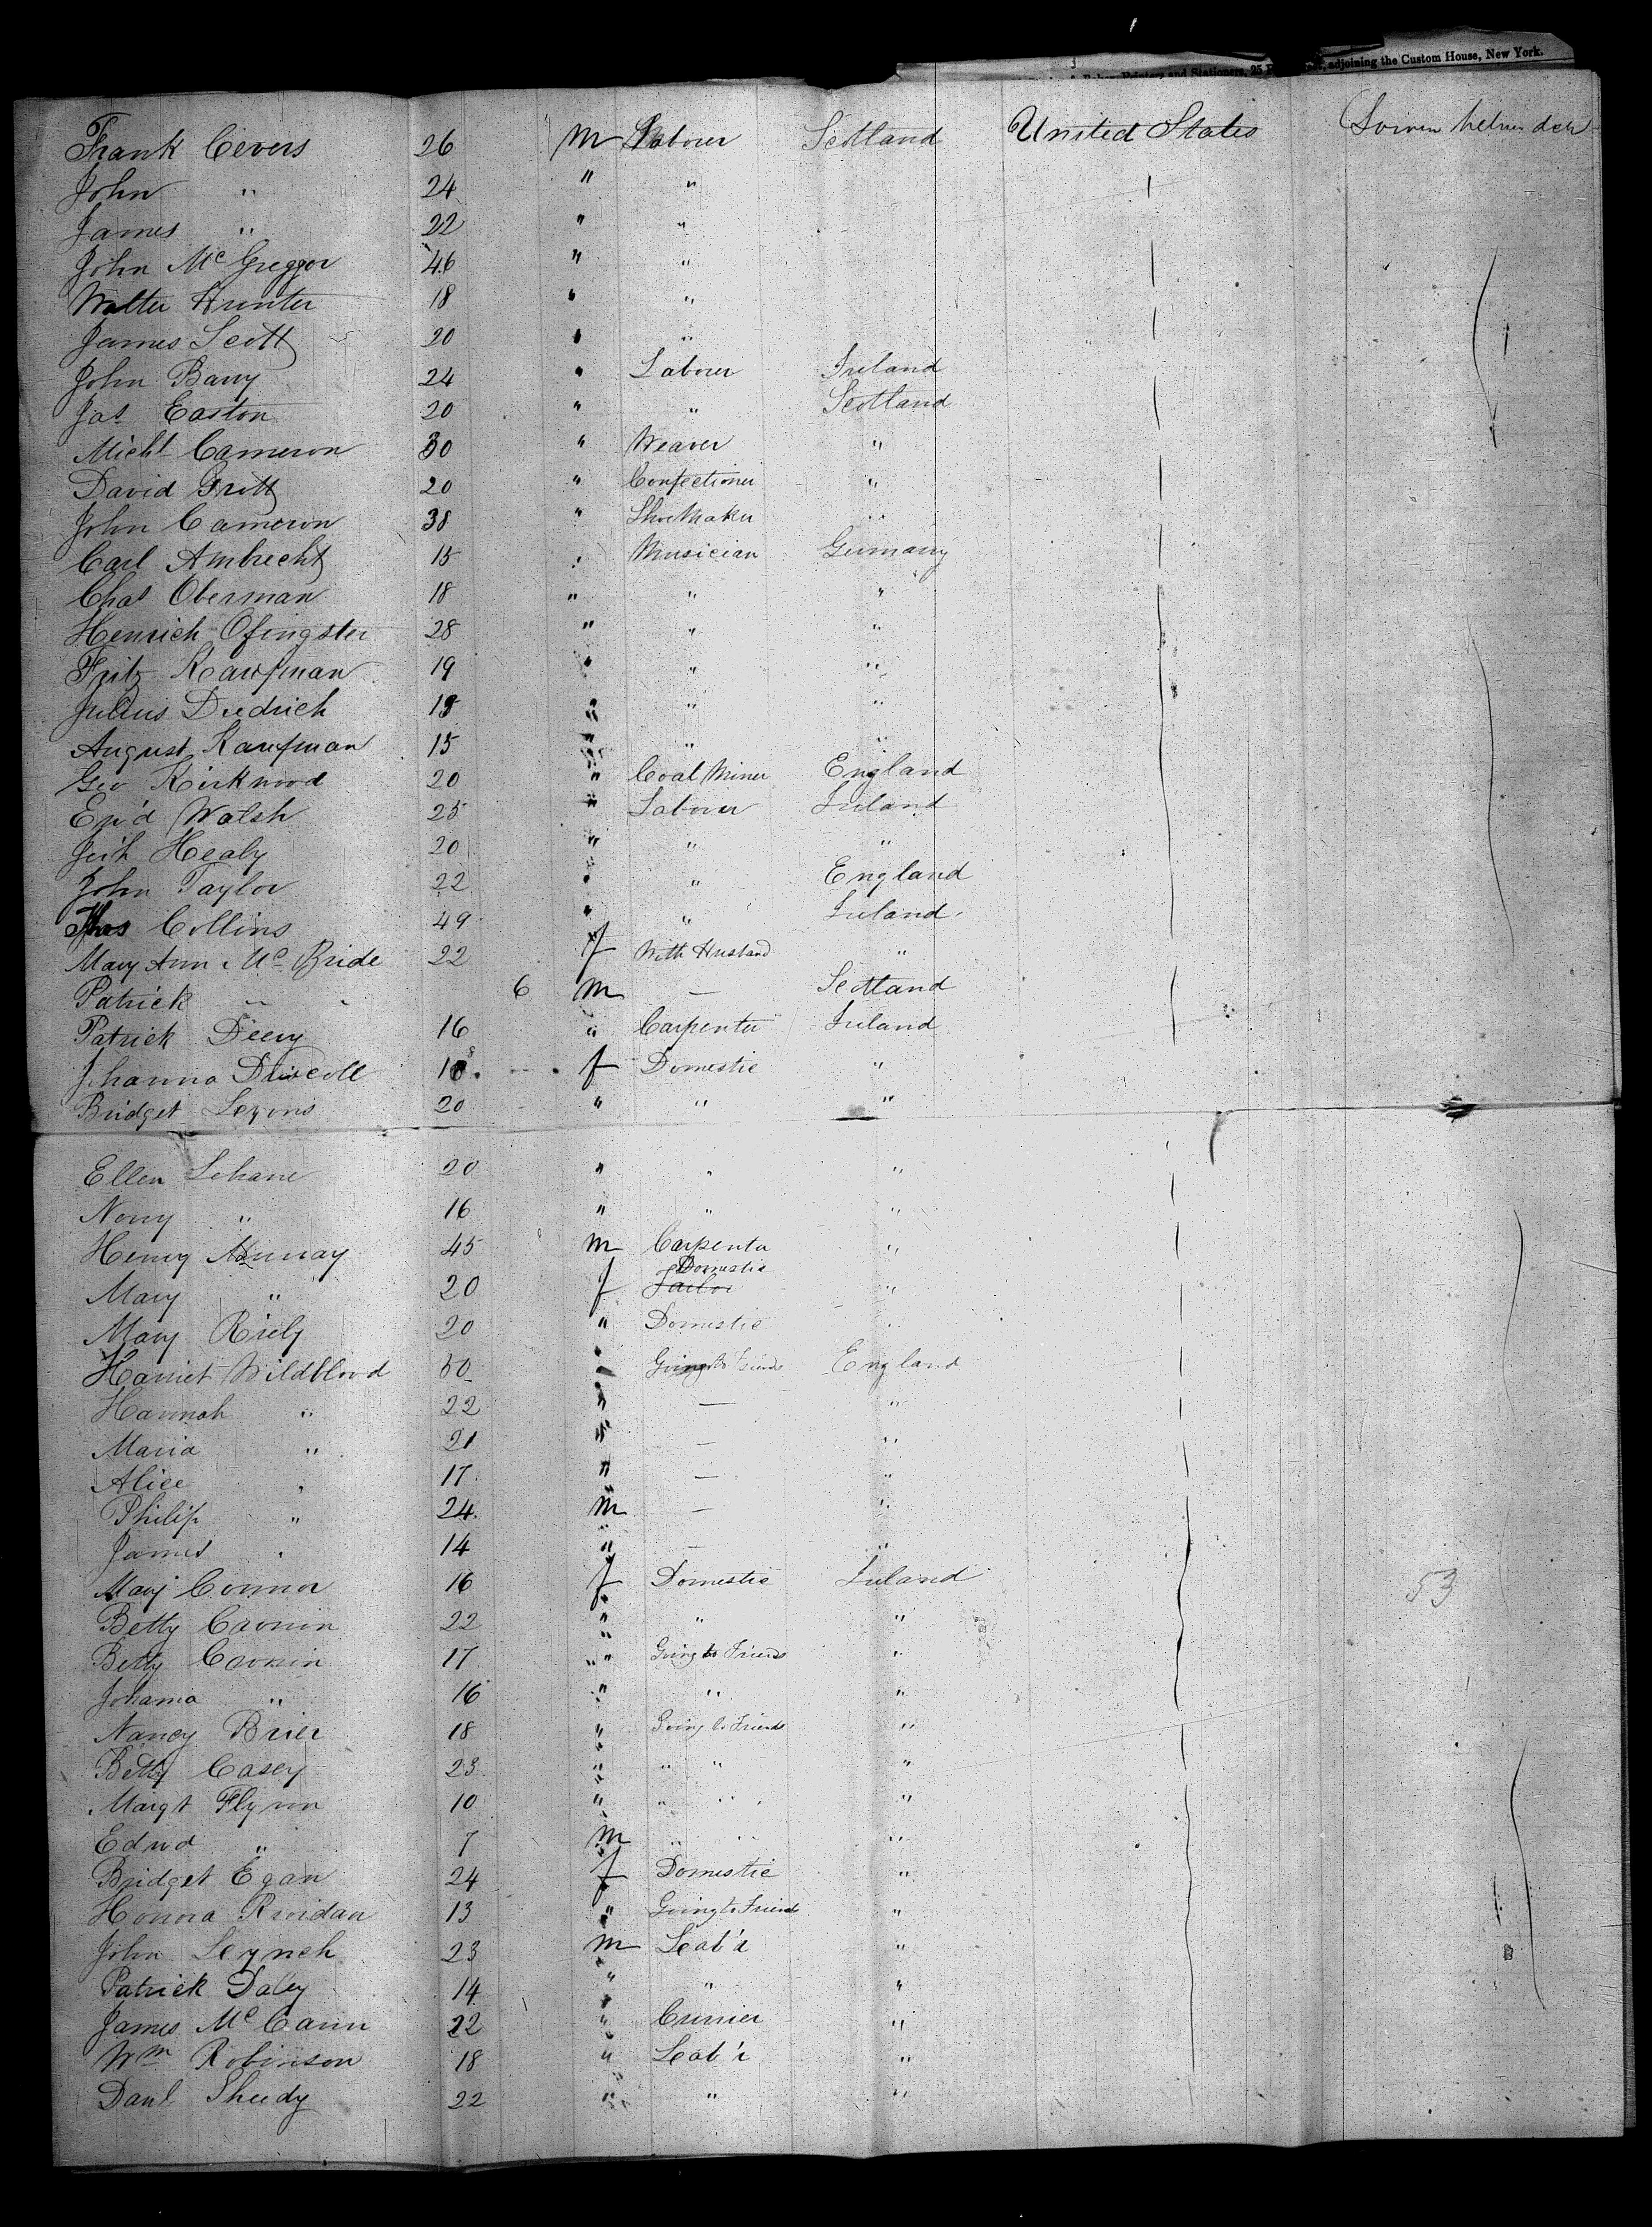 adjoining the Custom House, New York.
Frank Cevers 26 M Labourer Scotland United States
John " 24 " "
James " 22 " "
John McGreggor 46 " "
Walter Hunter 18 " "
James Scott 20 " "
John Barry 24 " Labourer Ireland
Jas Easton 20 " " Scotland
Michl Cameron 30 " Weaver "
David Gritt 20 " Confectioner "
John Cameron 38 " Shoe Maker "
Carl Ambrecht 15 " Musician Germany
Chas Oberman 18 " " "
Henrich Ofingster 28 " " "
Fritz Kaufman 19 " " "
Julius Diedrich 19 " " "
August Kaufman 15 " " "
Geo Kirkwood 20 " Coal Miner England
Ew'd Walsh 25 " Labourer Ireland
Jer'h Healy 20 " " "
John Taylor 22 " " England
Thos Collins 49 " " Ireland
Mary Ann McBride 22 f With Husband "
Patrick " 6 M — Scotland
Patrick Deery 16 " Carpenter Ireland
Johanna Driscoll 18 f Domestic "
Bridget Leyons 20 " " "
Ellen Lehane 20 " " "
Nony " 16 " " "
Henry Murray 45 M Carpenter "
Mary " 20 f Domestic "
Mary Riely 20 " Domestic "
Harriet Wildblood 50 " Going to Friends England
Hannah " 22 " — "
Maria " 21 " — "
Alice " 17 " — "
Philip " 24 M — "
James " 14 " — "
Mary Connor 16 f Domestic Ireland 53
Betty Cronin 22 " " "
Betty Cronin 17 " Going to Friends "
Johanna " 16 " " "
Nancy Brier 18 " Going to Friends "
Betty Casey 23 " " " "
Margt Flynn 10 " " " "
Edwd " 7 M " " "
Bridget Egan 24 f Domestic "
Honora Rvoidan 13 " Going to Friends "
John Leynch 23 M Leab'r "
Patrick Daley 14 " " "
James McCann 22 " Currier "
Wm Robinson 18 " Leab'r "
Danl Sheedy 22 " " "